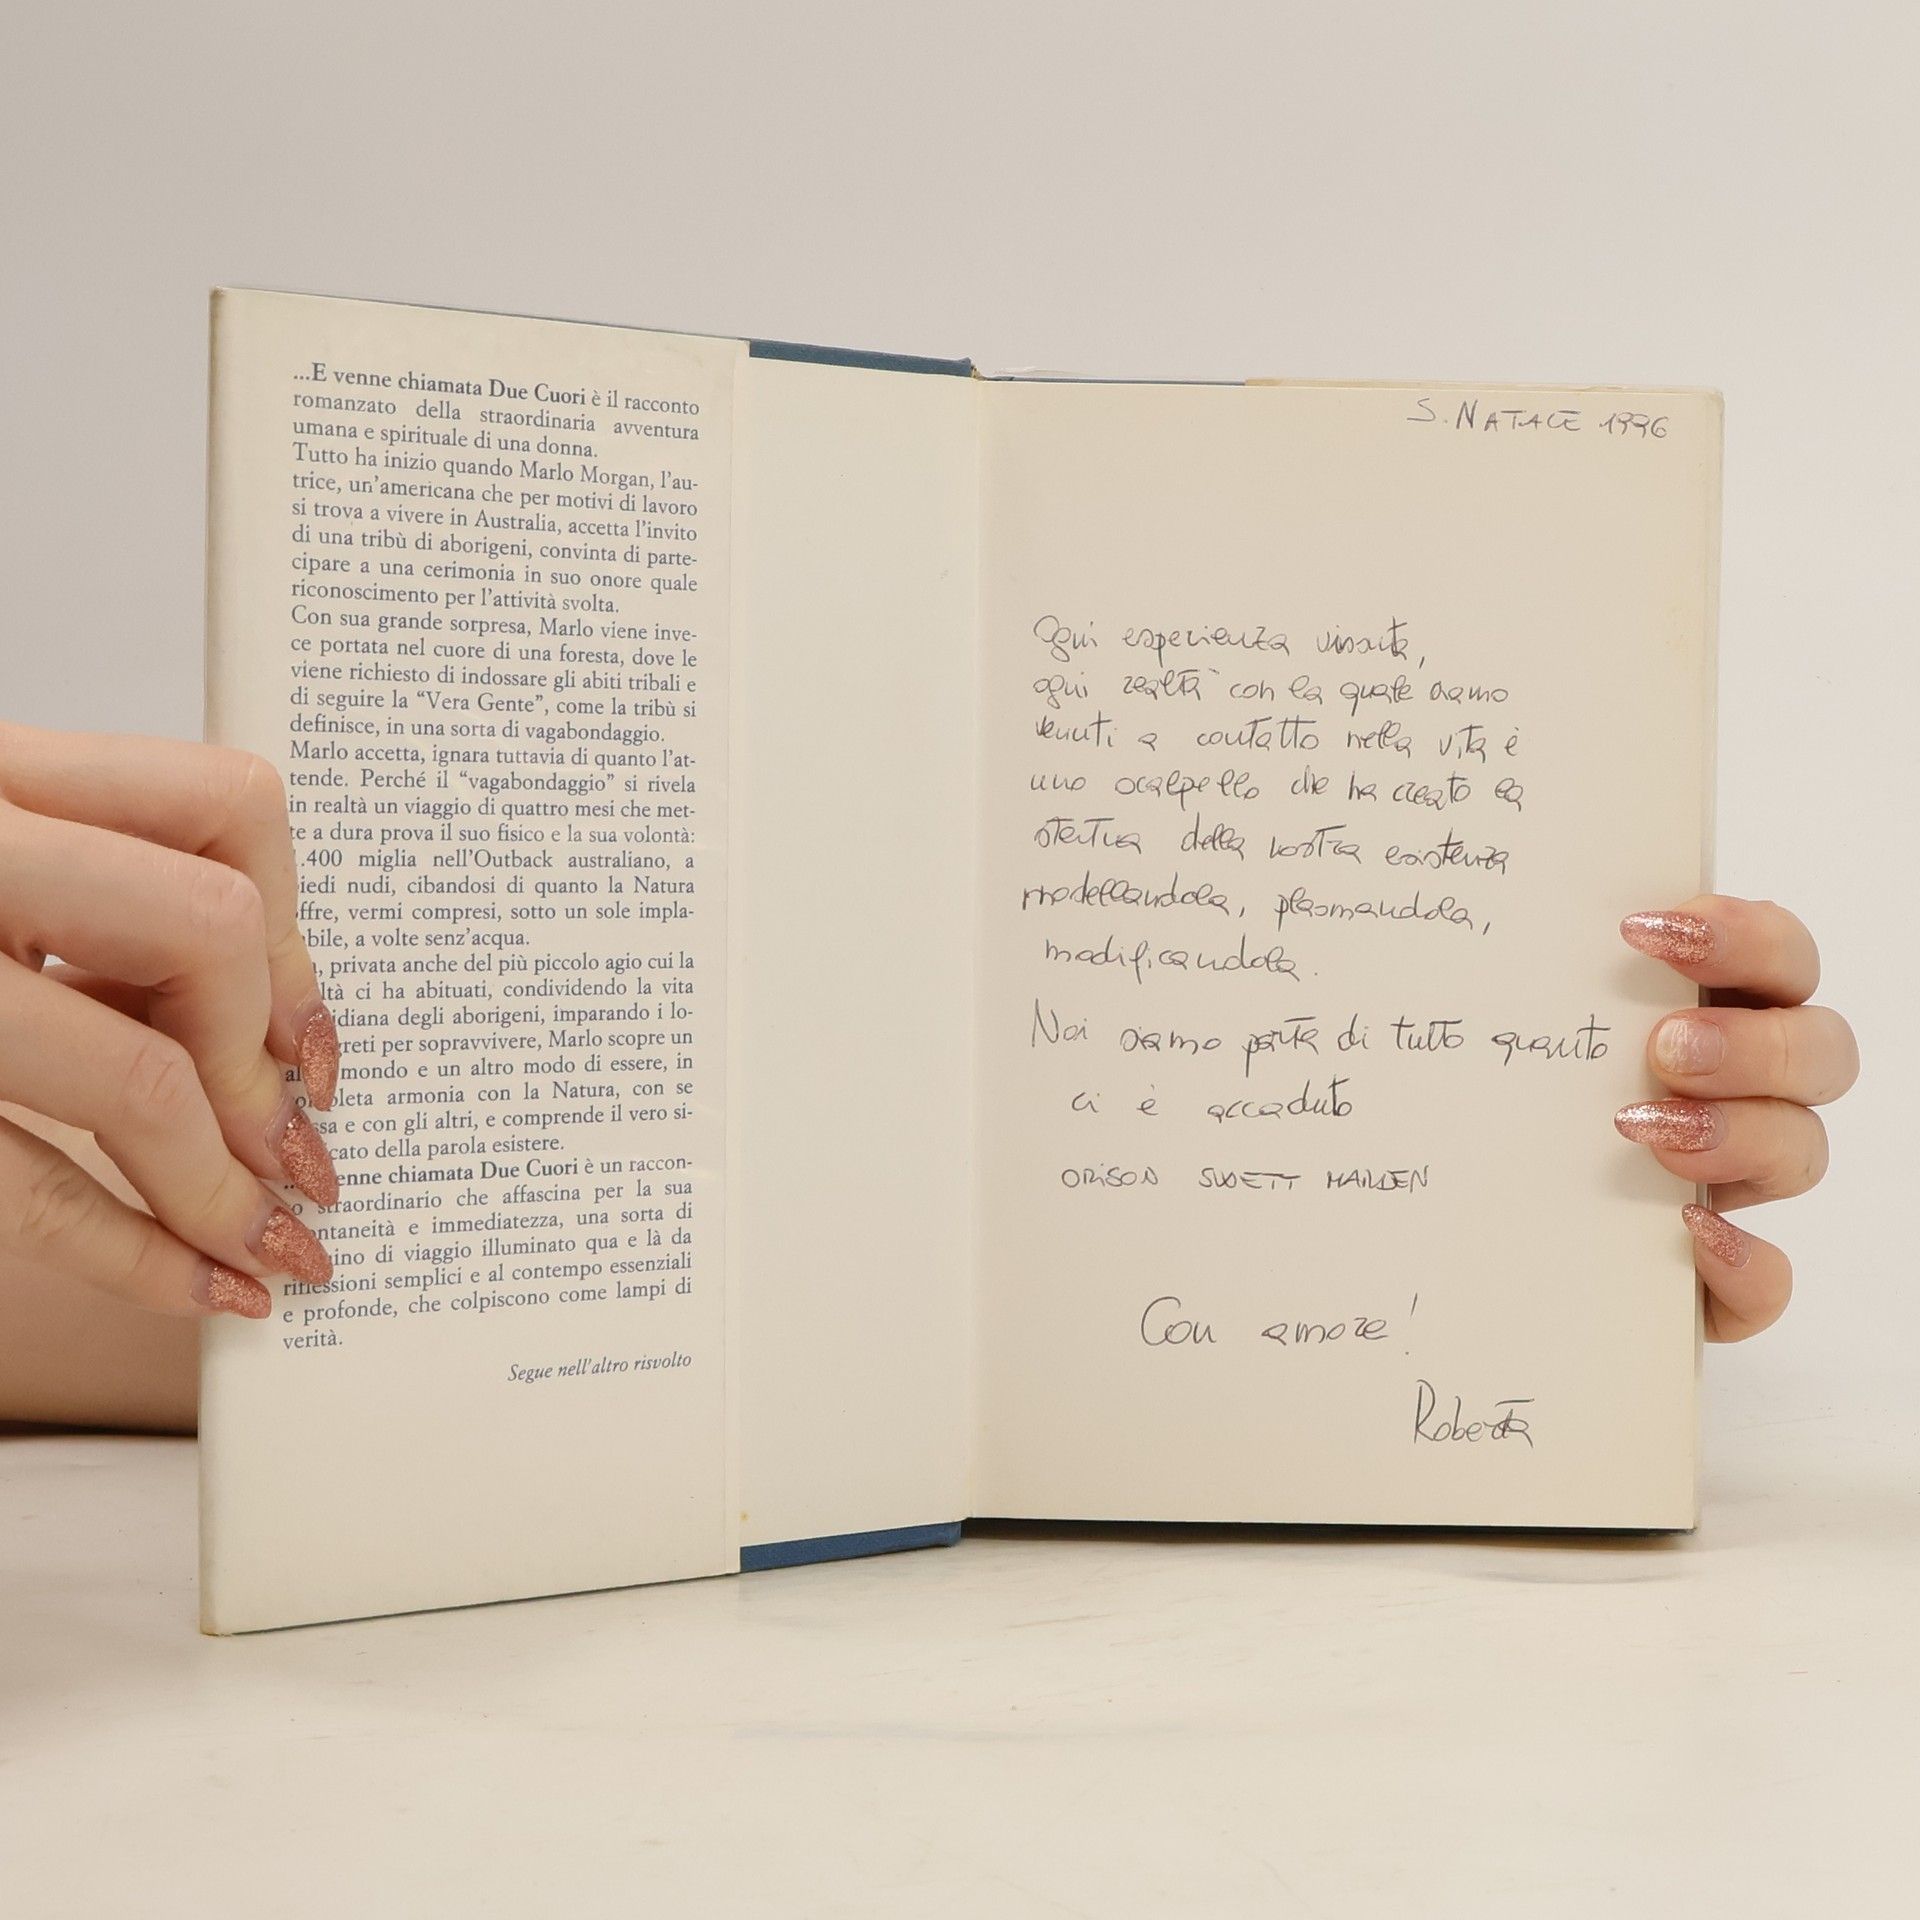 ...E venne chiamata Due Cuori è il racconto
romanzato della straordinaria avventura
umana e spirituale di una donna.
Tutto ha inizio quando Marlo Morgan, l'au-
trice, un'americana che per motivi di lavoro
si trova a vivere in Australia, accetta l'invito
di una tribù di aborigeni, convinta di parte-
cipare a una cerimonia in suo onore quale
riconoscimento per l'attività svolta.
Con sua grande sorpresa, Marlo viene inve-
ce portata nel cuore di una foresta, dove le
viene richiesto di indossare gli abiti tribali e
di seguire la “Vera Gente”, come la tribù si
definisce, in una sorta di vagabondaggio.
Marlo accetta, ignara tuttavia di quanto l'at-
tende. Perché il “vagabondaggio” si rivela
in realtà un viaggio di quattro mesi che met-
te a dura prova il suo fisico e la sua volontà:
1.400 miglia nell'Outback australiano, a
piedi nudi, cibandosi di quanto la Natura
offre, vermi compresi, sotto un sole impla-
bile, a volte senz'acqua.
privata anche del più piccolo agio cui la
ltà ci ha abituati, condividendo la vita
idiana degli aborigeni, imparando i lo-
greti per sopravvivere, Marlo scopre un
mondo e un altro modo di essere, in
pleta armonia con la Natura, con se
ssa e con gli altri, e comprende il vero si-
cato della parola esistere.
enne chiamata Due Cuori è un raccon-
straordinario che affascina per la sua
ntaneità e immediatezza, una sorta di
ino di viaggio illuminato qua e là da
riflessioni semplici e al contempo essenziali
e profonde, che colpiscono come lampi di
verità.
Segue nell'altro risvolto
S. NATALE 1996
Ogni esperienza vissuta,
ogni realtà con la quale siamo
venuti a contatto nella vita è
uno scalpello che ha creato la
statua della nostra esistenza
modellandola, plasmandola,
modificandola.
Noi siamo parte di tutto quanto
ci è accaduto
ORISON SWETT MARDEN
Con amore!
Roberta